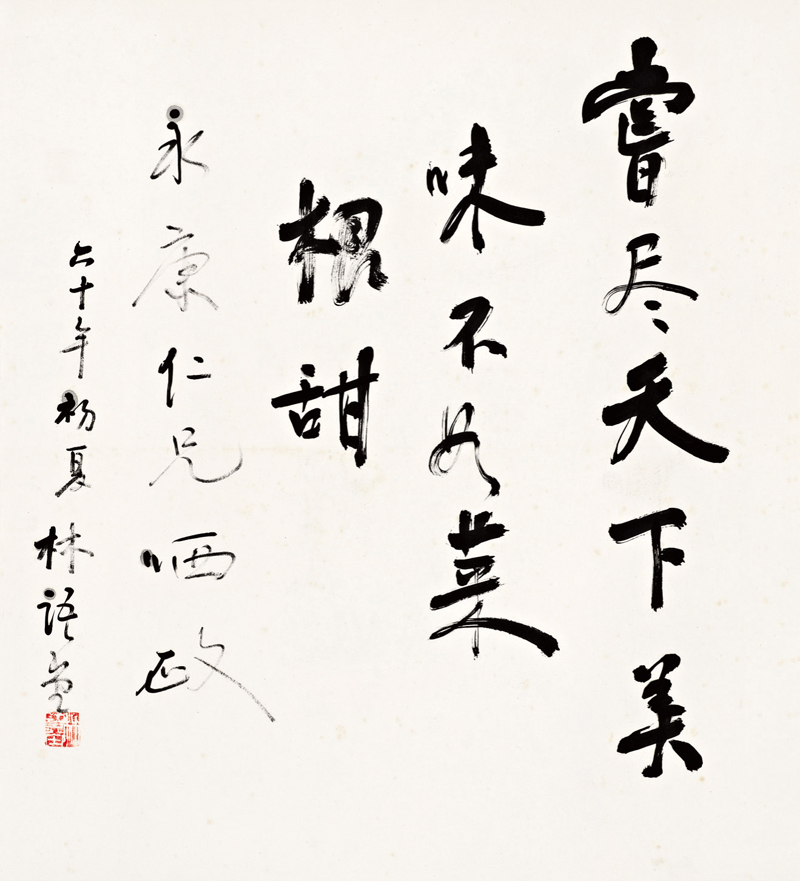 嘗尽天下美
味不如菜
根甜
永康仁兄哂政
六十年初夏林語堂